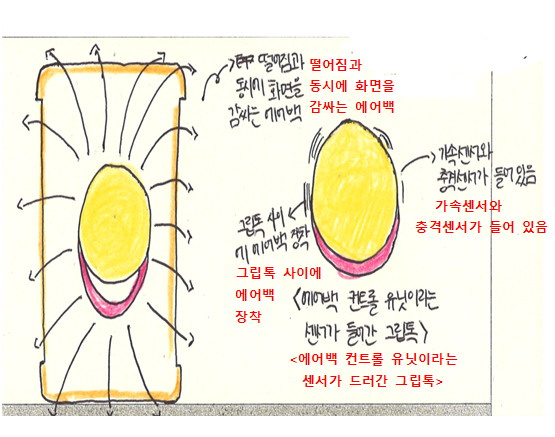 떨어짐과
동시에 화면을
감싸는 에어백
떨어짐과
동시에 화면을
감싸는 에어백
가속센서와
충격센서가 들어 있음
가속센서와
충격센서가 들어 있음
그립톡 사이
에 에어백 장착
그립톡 사이에
에어백
장착
<에어백 컨트롤 유닛이라는
센서가 들어간 그립톡>
<에어백 컨트롤 유닛이라는
센서가 드러간 그립톡>